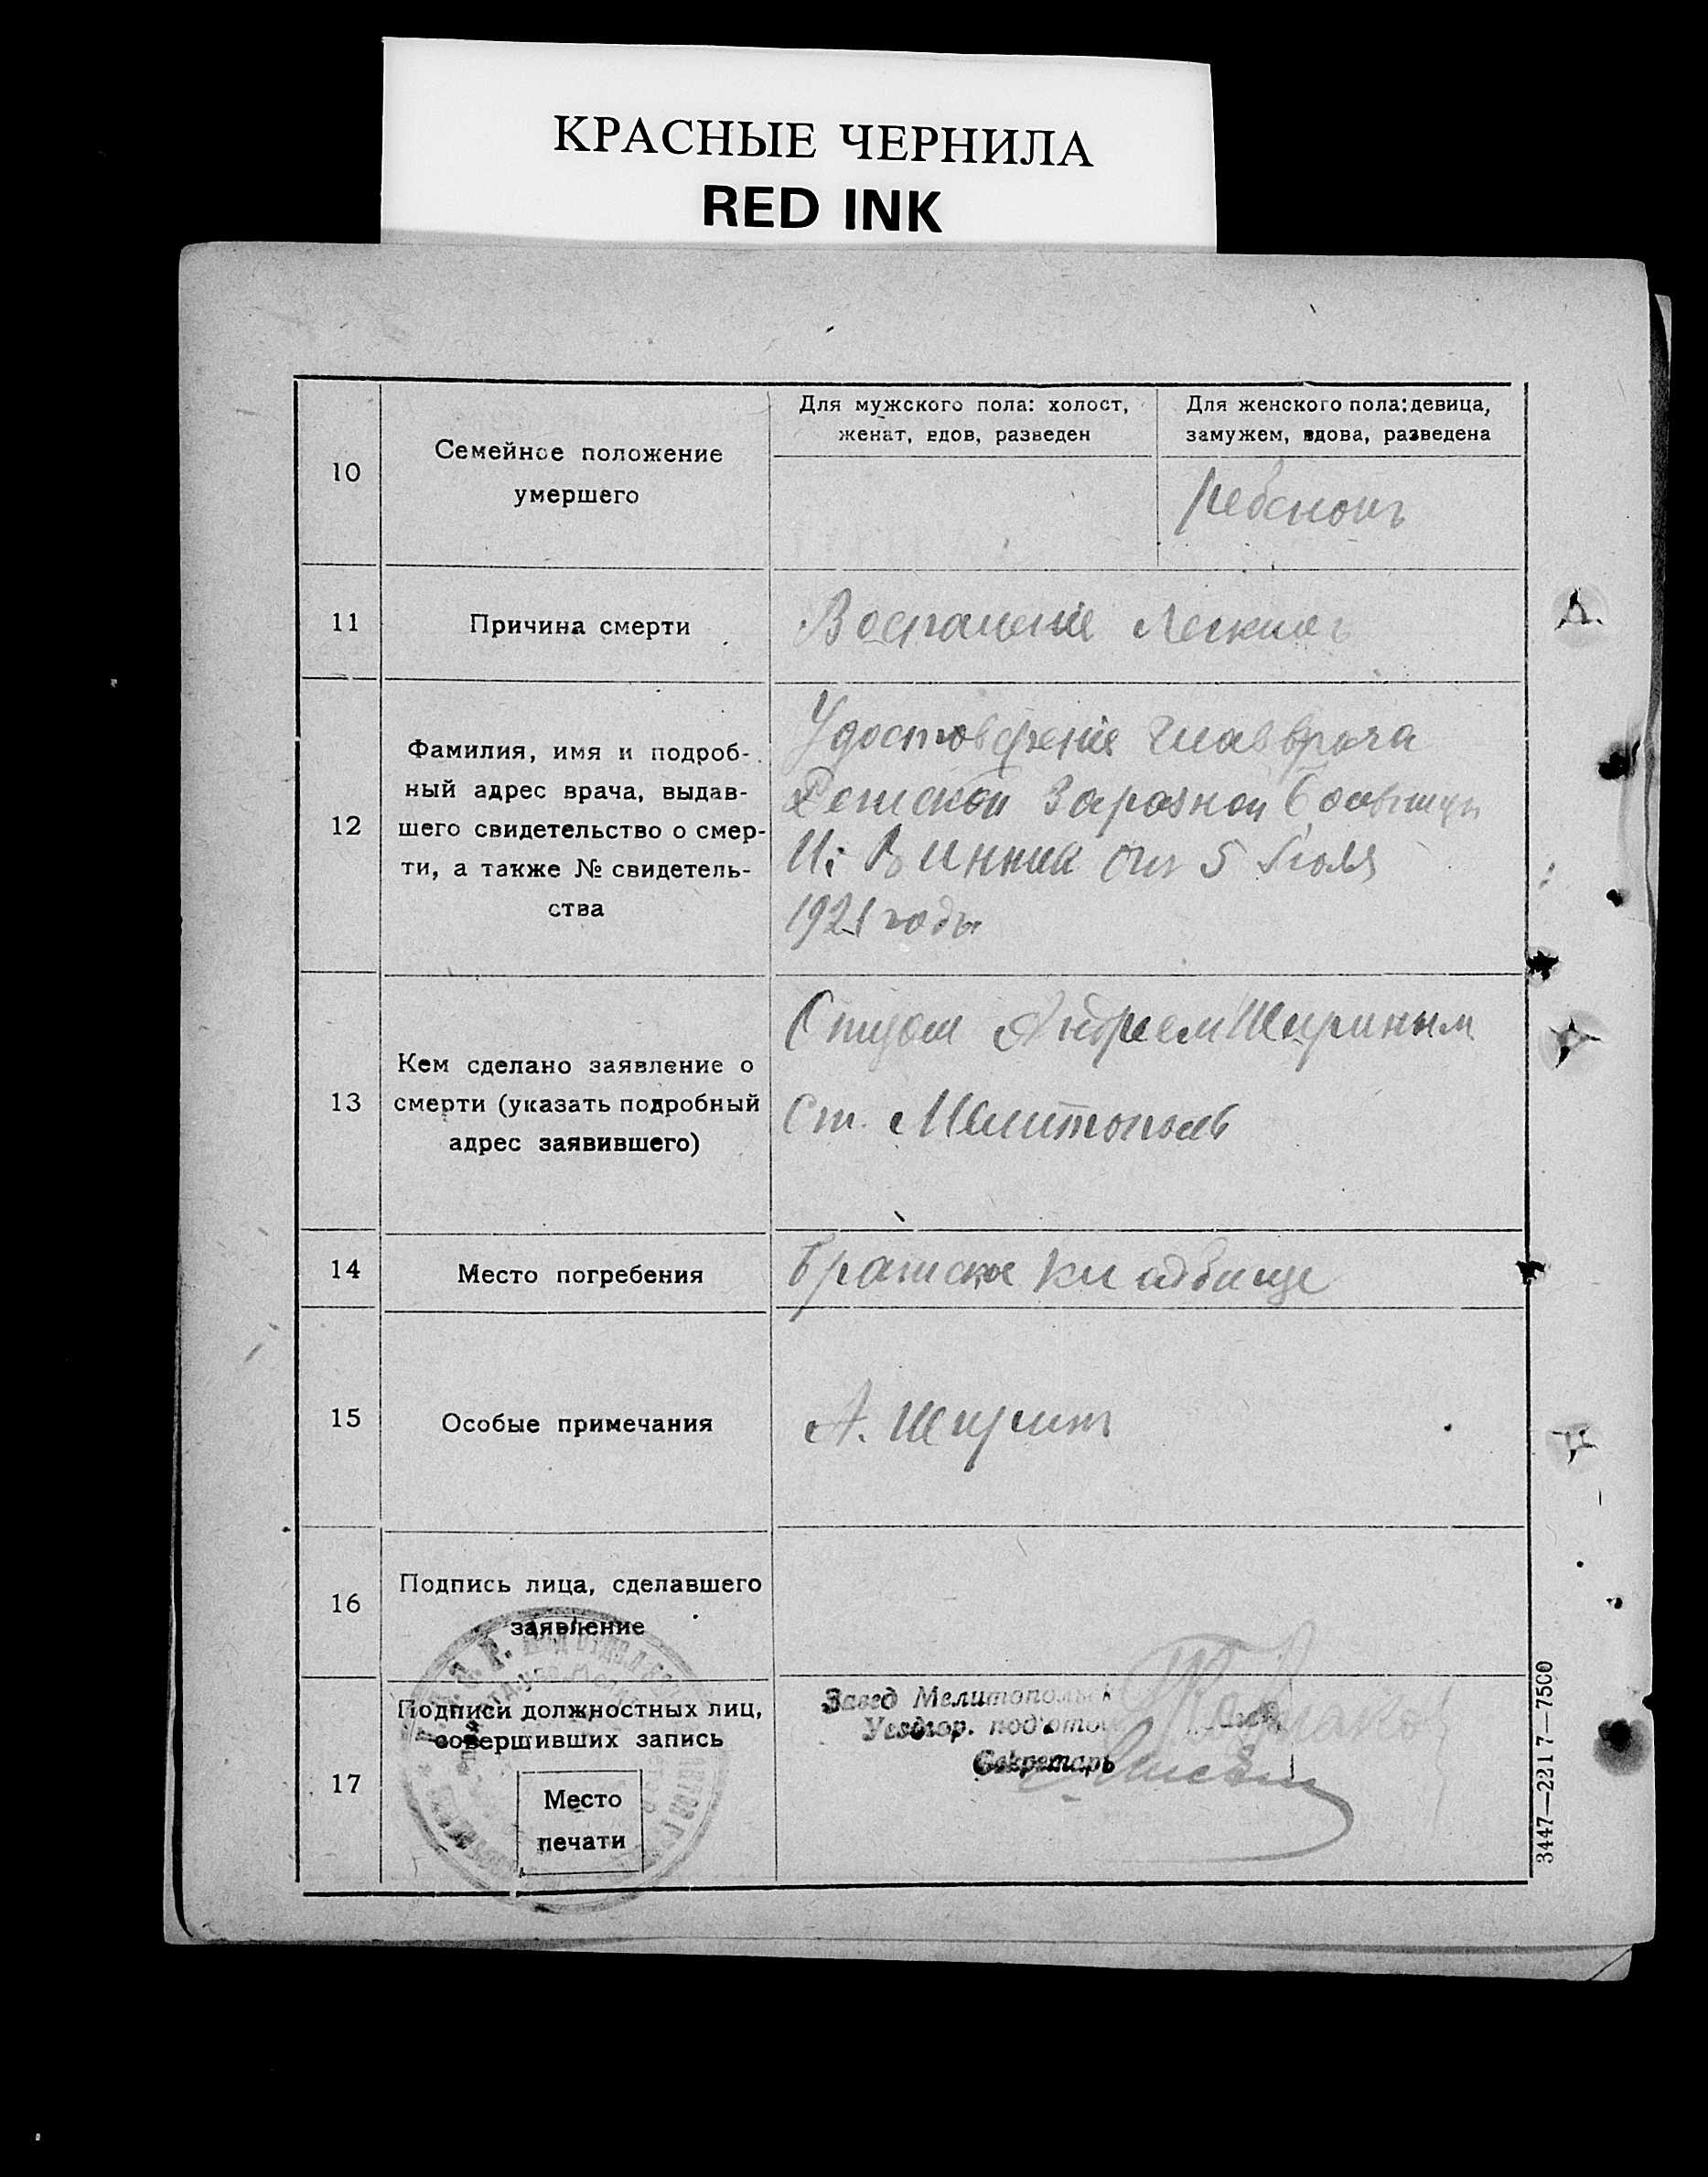 КРАСНЫЕ ЧЕРНИЛА
RED INK
10
Семейное положение
умершего
Для мужского пола: холост,
женат, вдов, разведен
Для женского пола: девица,
замужем, вдова, разведена
Ребенокъ
11
Причина смерти
Воспаленіе Легкихъ
12
Фамилия, имя и подроб-
ный адрес врача, выдав-
шего свидетельство о смер-
ти, а также № свидетель-
ства
Удостоверенія Главврача
Заразной Больницы
от 5 Июля
1921 года
13
Кем сделано заявление о
смерти (указать подробный
адрес заявившего)
Отцом Андреем Шириным
Ст. Мелитополь
14
Место погребения
Братское кладбище
15
Особые примечания
А. Ширин
16
Подпись лица, сделавшего
заявление
17
Подписи должностных лиц,
совершивших запись
Место
печати
Завед Мелитопольск
Уездгор. под'отд
Секретарь
3447—2217—7500